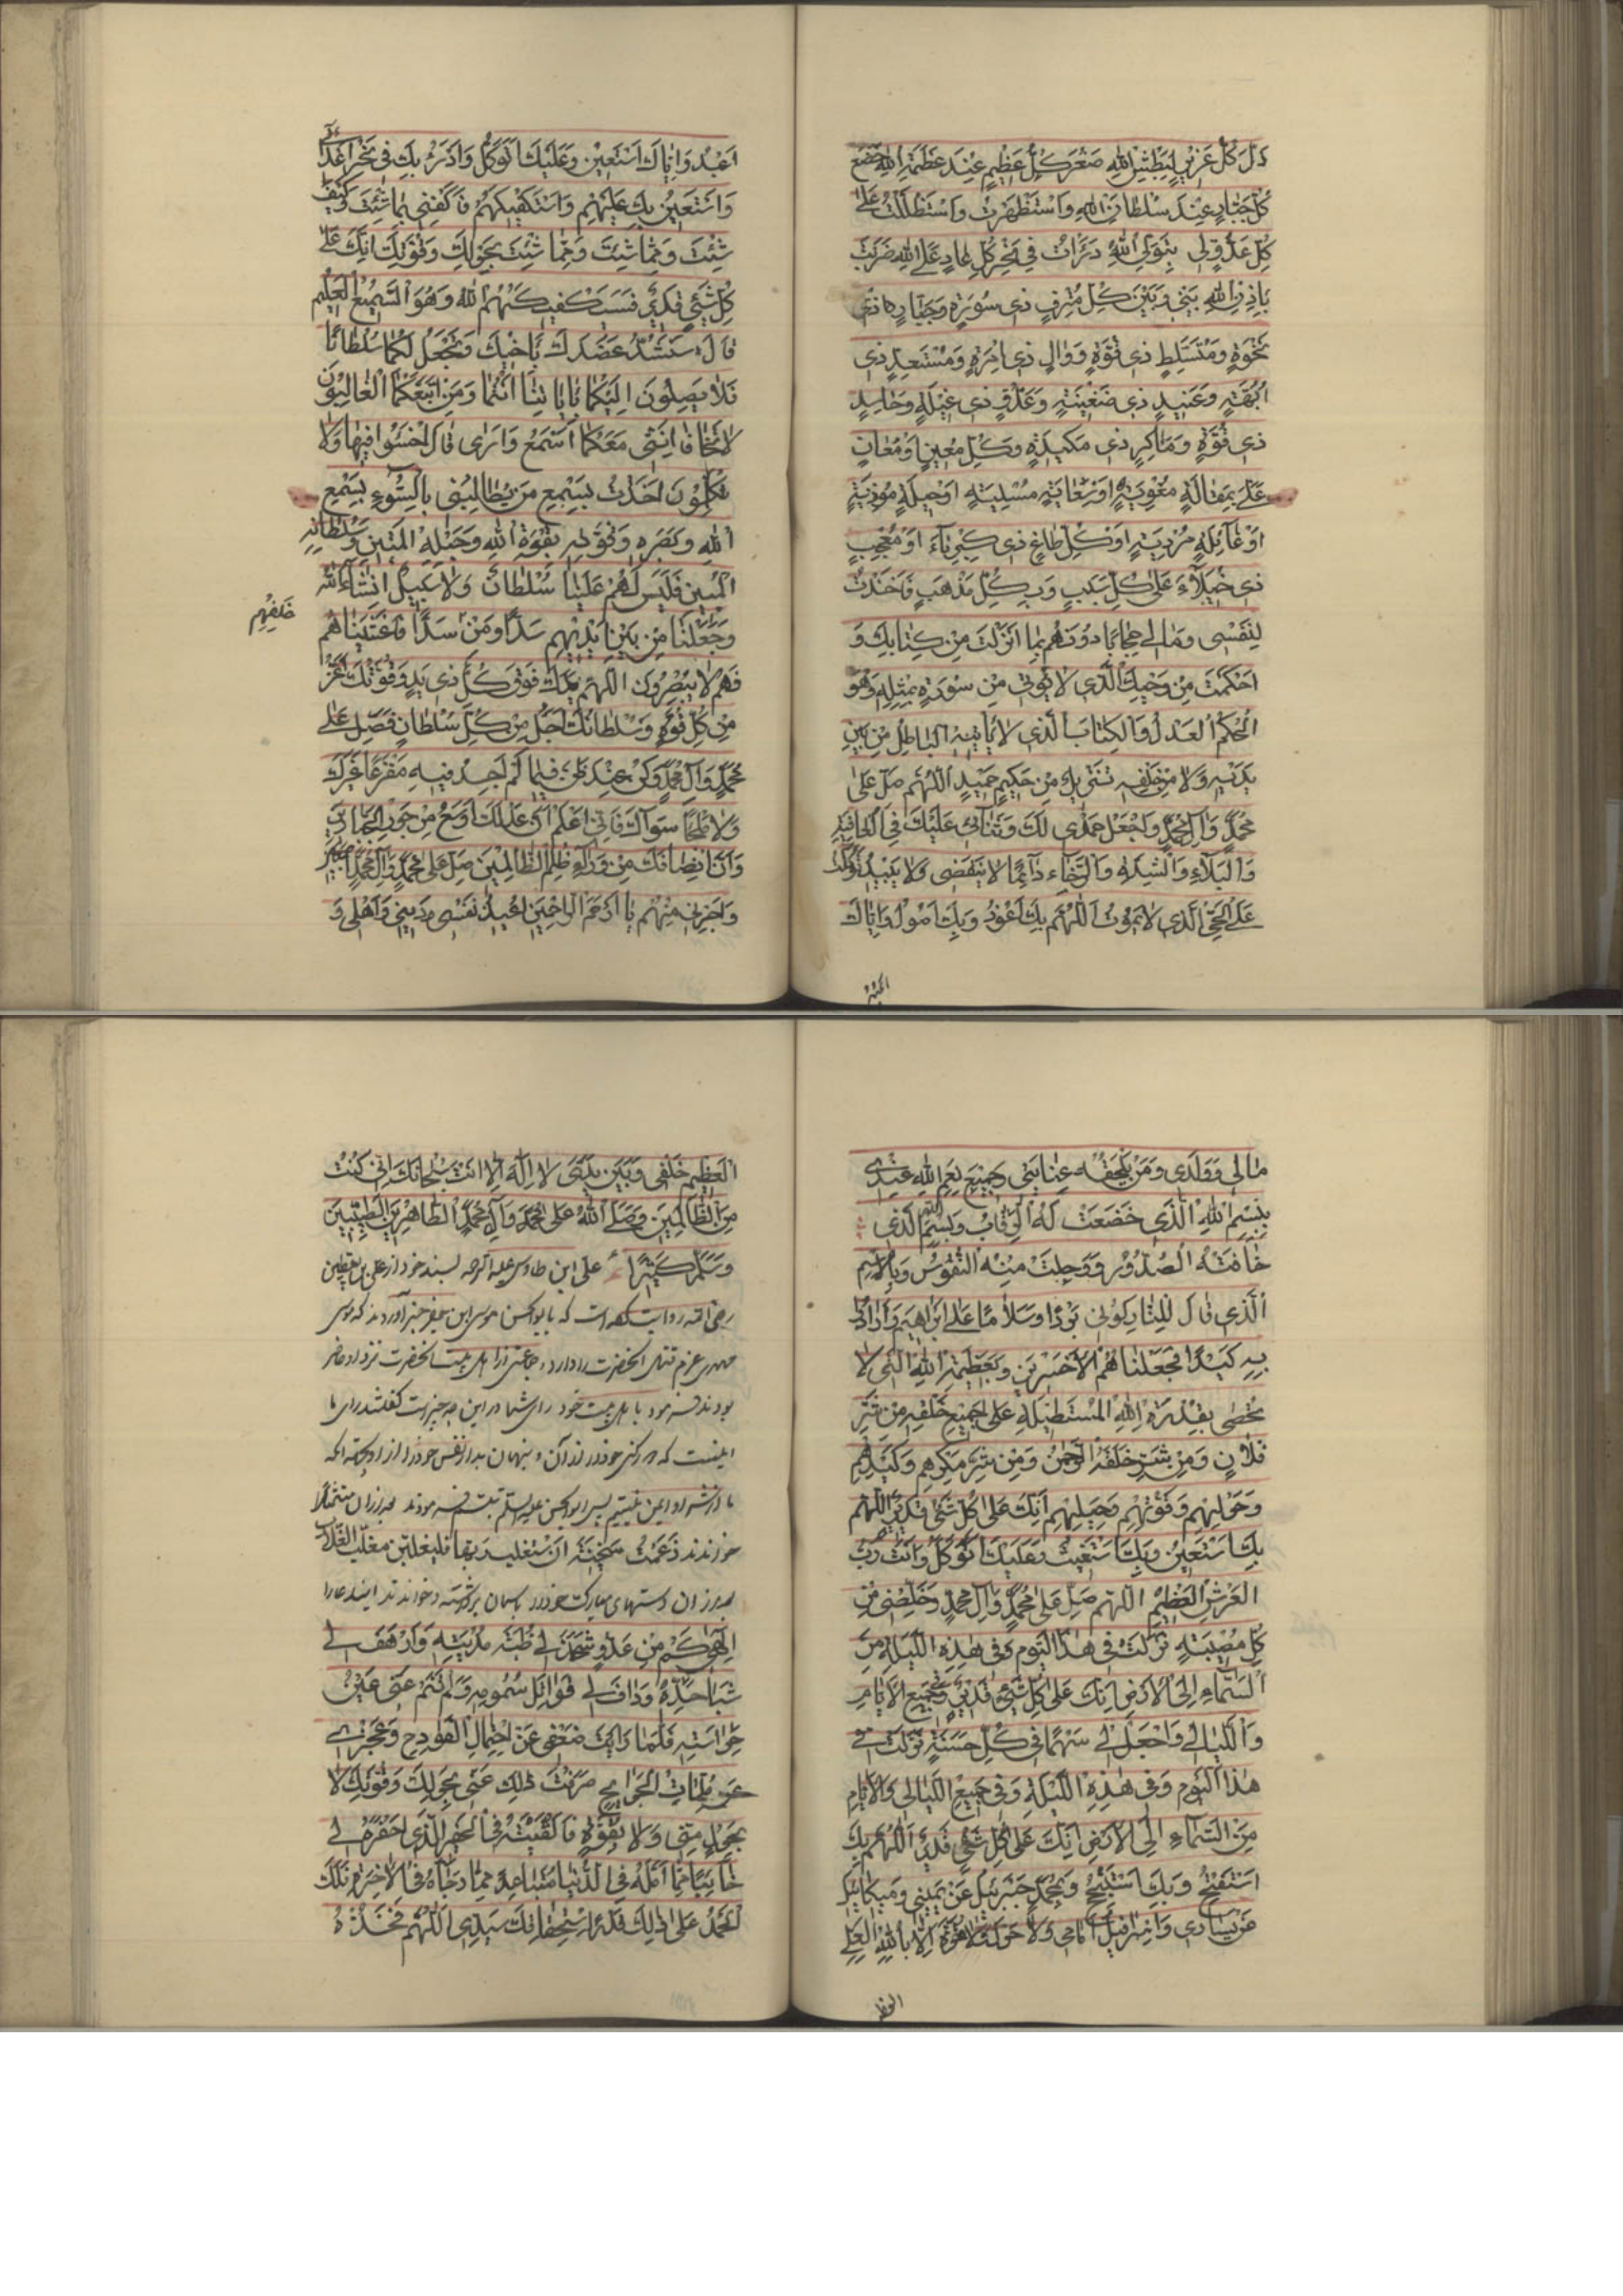 ذَلَّ كُلُّ عَزِيزٍ لِبَطْشِ اللهِ صَغُرَ كُلُّ عَظِيمٍ عِنْدَ عَظَمَةِ اللهِ خَضَعَ
كُلُّ جَبَّارٍ عِنْدَ سُلْطَانِ اللهِ وَاسْتَظْهَرْتُ وَاسْتَطَلْتُ عَلَى
كُلِّ عَدُوٍّ لِي بِتَوَلِّي اللهِ دَرَأْتُ فِي نَحْرِ كُلِّ عَادٍ عَلَيَّ اللهِ ضَرَبْتُ
بِإِذْنِ اللهِ بَيْنِي وَبَيْنَ كُلِّ مُتْرَفٍ ذِي سَوْرَةٍ وَجَبَّارٍ ذِي
نَخْوَةٍ وَمُتَسَلِّطٍ ذِي قُوَّةٍ وَوَالٍ ذِي اِمْرَةٍ وَمُسْتَعِدٍّ ذِي
اُبَّهَةٍ وَعَنِيدٍ ذِي ضَغِينَةٍ وَعَدُوٍّ ذِي غِيلَةٍ وَحَاسِدٍ
ذِي قُوَّةٍ وَمَاكِرٍ ذِي مَكِيدَةٍ وَكُلِّ مُعِينٍ اَوْ مُعَانٍ
عَلَيَّ بِمَقَالَةٍ مُغْوِيَةٍ اَوْ سِعَايَةٍ مُسْلِيَةٍ اَوْ حِيلَةٍ مُوذِيَةٍ
اَوْ غَائِلَةٍ مُرْدِيَةٍ اَوْ كُلِّ طَاغٍ ذِي كِبْرِيَاءَ اَوْ مُعْجِبٍ
ذِي خُيَلَاءَ عَلَى كُلِّ سَبَبٍ وَبِكُلِّ مَذْهَبٍ فَاَخَذْتُ
لِنَفْسِي وَمَالِي حِجَابًا دُونَهُمْ بِمَا اَنْزَلْتَ مِنْ كِتَابِكَ وَ
اَحْكَمْتَ مِنْ وَحْيِكَ الَّذِي لَا يُؤْتَى مِنْ سُورَةٍ بِمِثْلِهِ وَهُوَ
الْحَكَمُ الْعَدْلُ وَالْكِتَابُ الَّذِي لَا يَأْتِيهِ الْبَاطِلُ مِنْ بَيْنِ
يَدَيْهِ وَلَا مِنْ خَلْفِهِ تَنْزِيلٌ مِنْ حَكِيمٍ حَمِيدٍ اَللّٰهُمَّ صَلِّ عَلَى
مُحَمَّدٍ وَآلِ مُحَمَّدٍ وَاجْعَلْ حَمْدِي لَكَ وَثَنَائِي عَلَيْكَ فِي الْعَافِيَةِ
وَالْبَلَاءِ وَالشِّدَّةِ وَالرَّخَاءِ دَائِمًا لَا يَنْقَضِي وَلَا يَبِيدُ تَوَكَّلْتُ
عَلَى الْحَيِّ الَّذِي لَا يَمُوتُ اَللّٰهُمَّ بِكَ اَعُوذُ وَبِكَ اَصُولُ وَاِيَّاكَ
اَعْبُدُ وَاِيَّاكَ اَسْتَعِينُ وَعَلَيْكَ اَتَوَكَّلُ وَاَدْرَءُ بِكَ فِي نَحْرِ اَعْدَائِي
وَاَسْتَعِينُ بِكَ عَلَيْهِمْ وَاَسْتَكْفِيكَهُمْ فَاكْفِنِي بِمَا شِئْتَ وَكَيْفَ
شِئْتَ وَمِمَّا شِئْتَ وَمِمَّا شِئْتَ بِحَوْلِكَ وَقُوَّتِكَ اِنَّكَ عَلَى
كُلِّ شَيْءٍ قَدِيرٌ فَسَيَكْفِيكَهُمُ اللهُ وَهُوَ السَّمِيعُ الْعَلِيمُ
قَالَ سَنَشُدُّ عَضُدَكَ بِاَخِيكَ وَنَجْعَلُ لَكُمَا سُلْطَانًا
فَلَا يَصِلُونَ اِلَيْكُمَا بِآيَاتِنَا اَنْتُمَا وَمَنِ اتَّبَعَكُمَا الْغَالِبُونَ
لَا تَخَافَا اِنَّنِي مَعَكُمَا اَسْمَعُ وَاَرَى قَالَ اخْسَئُوا فِيهَا وَلَا
تُكَلِّمُونِ اَخَذْتُ بِسَمْعِ مَنْ يُطَالِبُنِي بِالسُّوءِ بِسَمْعِ
اللهِ وَبَصَرِهِ وَقُوَّتِهِ بِقُوَّةِ اللهِ وَحَبْلِهِ الْمَتِينِ وَسُلْطَانِهِ
الْمُبِينِ فَلَيْسَ لَهُمْ عَلَيْنَا سُلْطَانٌ وَلَا سَبِيلٌ اِنْشَاءَ اللهُ
خَلْفِهِمْ
وَجَعَلْنَا مِنْ بَيْنِ اَيْدِيهِمْ سَدًّا وَمِنْ سَدًّا فَاَغْشَيْنَاهُمْ
فَهُمْ لَا يُبْصِرُونَ اَللّٰهُمَّ يَدُكَ فَوْقَ كُلِّ ذِي يَدٍ وَقُوَّتُكَ اَعَزُّ
مِنْ كُلِّ قُوَّةٍ وَسُلْطَانُكَ اَجَلُّ مِنْ كُلِّ سُلْطَانٍ فَصَلِّ عَلَى
مُحَمَّدٍ وَآلِ مُحَمَّدٍ وَكُنْ عِنْدَ ظَنِّي فِيمَا لَمْ اَجِدْ فِيهِ مَفْزَعًا غَيْرَكَ
وَلَا مَلْجَأً سِوَاكَ فَاِنِّي اَعْلَمُ اَنَّ عَدْلَكَ اَوْسَعُ مِنْ جَوْرِ الْجَبَّارِينَ
وَاَنَّ اِنْصَافَكَ مِنْ وَرَاءِ ظُلْمِ الظَّالِمِينَ صَلِّ عَلَى مُحَمَّدٍ وَآلِ مُحَمَّدٍ
وَاَجِرْنِي مِنْهُمْ يَا اَرْحَمَ الرَّاحِمِينَ اُعِيذُ نَفْسِي وَدِينِي وَاَهْلِي وَ
مَالِي وَوَلَدِي وَمَنْ يَلْحَقُهُ عِنَايَتِي وَجَمِيعَ نِعَمِ اللهِ عِنْدِي
بِبِسْمِ اللهِ الَّذِي خَضَعَتْ لَهُ الرِّقَابُ وَبِسْمِ اللهِ الَّذِي
خَافَتْهُ الصُّدُورُ وَوَجِلَتْ مِنْهُ النُّفُوسُ وَبِالْاِسْمِ
الَّذِي قَالَ لِلنَّارِ كُونِي بَرْدًا وَسَلَامًا عَلَى اِبْرَاهِيمَ وَاَرَادُوا
بِهِ كَيْدًا فَجَعَلْنَاهُمُ الْاَخْسَرِينَ وَبِعَظَمَةِ اللهِ الَّتِي لَا
تُحْصَى بِقُدْرَةِ اللهِ الْمُسْتَطِيلَةِ عَلَى جَمِيعِ خَلْقِهِ مِنْ شَرِّ
فُلَانٍ وَمِنْ شَرِّ مَا خَلَقَهُ الرَّحْمٰنُ وَمِنْ شَرِّ مَكْرِهِمْ وَكَيْدِهِمْ
وَحَوْلِهِمْ وَقُوَّتِهِمْ وَحِيَلِهِمْ اِنَّكَ عَلَى كُلِّ شَيْءٍ قَدِيرٌ اَللّٰهُمَّ
بِكَ اَسْتَعِينُ وَبِكَ اَسْتَغِيثُ وَعَلَيْكَ اَتَوَكَّلُ وَاَنْتَ رَبُّ
الْعَرْشِ الْعَظِيمِ اَللّٰهُمَّ صَلِّ عَلَى مُحَمَّدٍ وَآلِ مُحَمَّدٍ وَخَلِّصْنِي مِنْ
كُلِّ مُصِيبَةٍ نَزَلَتْ فِي هٰذَا الْيَوْمِ وَفِي هٰذِهِ اللَّيْلَةِ مِنَ
السَّمَاءِ اِلَى الْاَرْضِ اِنَّكَ عَلَى كُلِّ شَيْءٍ قَدِيرٌ وَفِي جَمِيعِ الْاَيَّامِ
وَاللَّيَالِي وَاجْعَلْ لِي سَهْمًا فِي كُلِّ حَسَنَةٍ نَزَلَتْ فِي
هٰذَا الْيَوْمِ وَفِي هٰذِهِ اللَّيْلَةِ وَفِي جَمِيعِ اللَّيَالِي وَالْاَيَّامِ
مِنَ السَّمَاءِ اِلَى الْاَرْضِ اِنَّكَ عَلَى كُلِّ شَيْءٍ قَدِيرٌ اَللّٰهُمَّ بِكَ
اَسْتَفْتِحُ وَبِكَ اَسْتَنْجِحُ وَبِمُحَمَّدٍ جَبْرَئِيلُ عَنْ يَمِينِي وَمِيكَائِيلُ
عَنْ يَسَارِي وَاِسْرَافِيلُ اَمَامِي وَلَا حَوْلَ وَلَا قُوَّةَ اِلَّا بِاللهِ الْعَلِيِّ
العظ
الْعَظِيمِ خَلْفِي وَبَيْنَ يَدَيَّ لَا اِلٰهَ اِلَّا اَنْتَ سُبْحَانَكَ اِنِّي كُنْتُ
مِنَ الظَّالِمِينَ وَصَلَّى اللهُ عَلَى مُحَمَّدٍ وَآلِ مُحَمَّدٍ الطَّاهِرِينَ الطَّيِّبِينَ
وَسَلَّمَ كَثِيرًا علی ابن طاوس علیه الرحمه بسند خود از علی بن یقطین
رضی الله روایت کرده است که بابوالحسن موسی ابن جعفر خبر آوردند که موسی
مهدی عزم قتل آنحضرت را دارد و جماعتی از اهل بیت آنحضرت نزد او حاضر
بودند فرمود با اهل بیت خود رای شما در این چه چیز است گفتند رای ما
اینست که دور کنی خود را از آن و پنهان بدار نفس خود را از او بجهة آنکه
ما از شر او ایمن نیستیم پس ابوالحسن علیه السلم تبسم فرمودند بعد از آن متمثلا
خواندند زَعَمَتْ سَخِينَةُ اَنْ سَتَغْلِبُ رَبَّهَا فَلَيُغْلَبَنَّ مُغَلِّبُ الْغُلَّابِ
بعد از آن دستهای مبارک خود را باسمان برداشته و خواندند این دعا را
اِلٰهِي كَمْ مِنْ عَدُوٍّ شَحَذَ لِي ظُبَةَ مُدْيَتِهِ وَاَرْهَفَ لِي
شَبَا حَدِّهِ وَدَافَ لِي قَوَاتِلَ سُمُومِهِ وَلَمْ تَنَمْ عَنِّي عَيْنُ
حِرَاسَتِهِ فَلَمَّا رَاَيْتَ ضَعْفِي عَنِ احْتِمَالِ الْفَوَادِحِ وَعَجْزِي
عَنْ مُلِمَّاتِ الْحَوَائِجِ صَرَفْتَ ذٰلِكَ عَنِّي بِحَوْلِكَ وَقُوَّتِكَ لَا
بِحَوْلٍ مِنِّي وَلَا بِقُوَّةٍ فَاَلْقَيْتَهُ فِي الْحَفِيرِ الَّذِي احْتَفَرَهُ لِي
خَائِبًا مِمَّا اَمَّلَهُ فِي الدُّنْيَا مُتَبَاعِدًا مِمَّا رَجَاهُ فِي الْآخِرَةِ فَلَكَ
الْحَمْدُ عَلَى ذٰلِكَ قَدْرَ اسْتِحْقَاقِكَ سَيِّدِي اَللّٰهُمَّ فَخُذْهُ